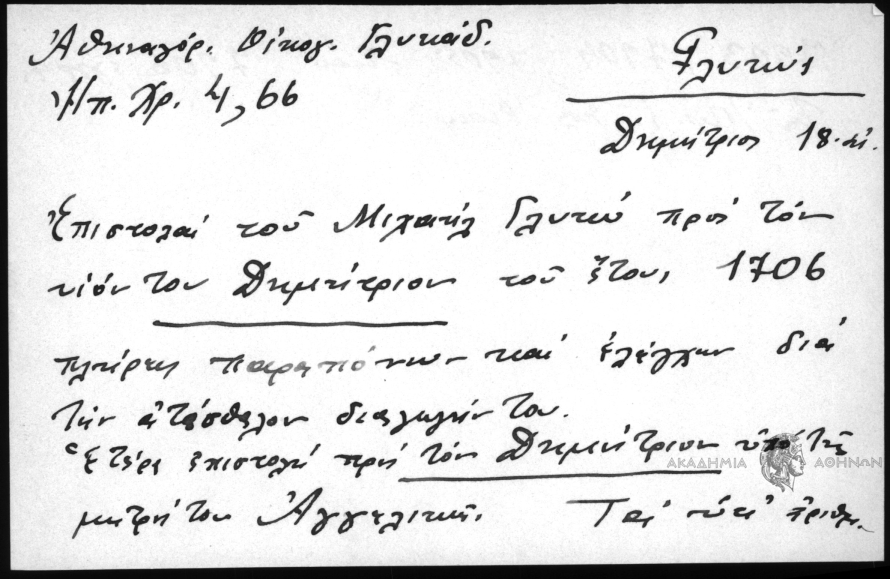 Ἀθηναγόρ. Οἰκογ. Γλυκάδ.
Ἠπ. Χρ. 4, 66
Γλυκύς
Δημήτριος 18. αἰ.
Ἐπιστολαί τοῦ Μιχαήλ Γλυκύ πρός τόν
υἱόν του Δημήτριον τοῦ ἔτους 1706
πλήρης παραπόνων καί ἐλέγχων διά
τήν ἀτάσθαλον διαγωγήν του.
Ἑτέρα ἐπιστολή πρός τόν Δημήτριον ὑπό τῆς
μητρός του Ἀγγελικῆς.
ΑΚΑΔΗΜΙΑ ΑΘΗΝΩΝ